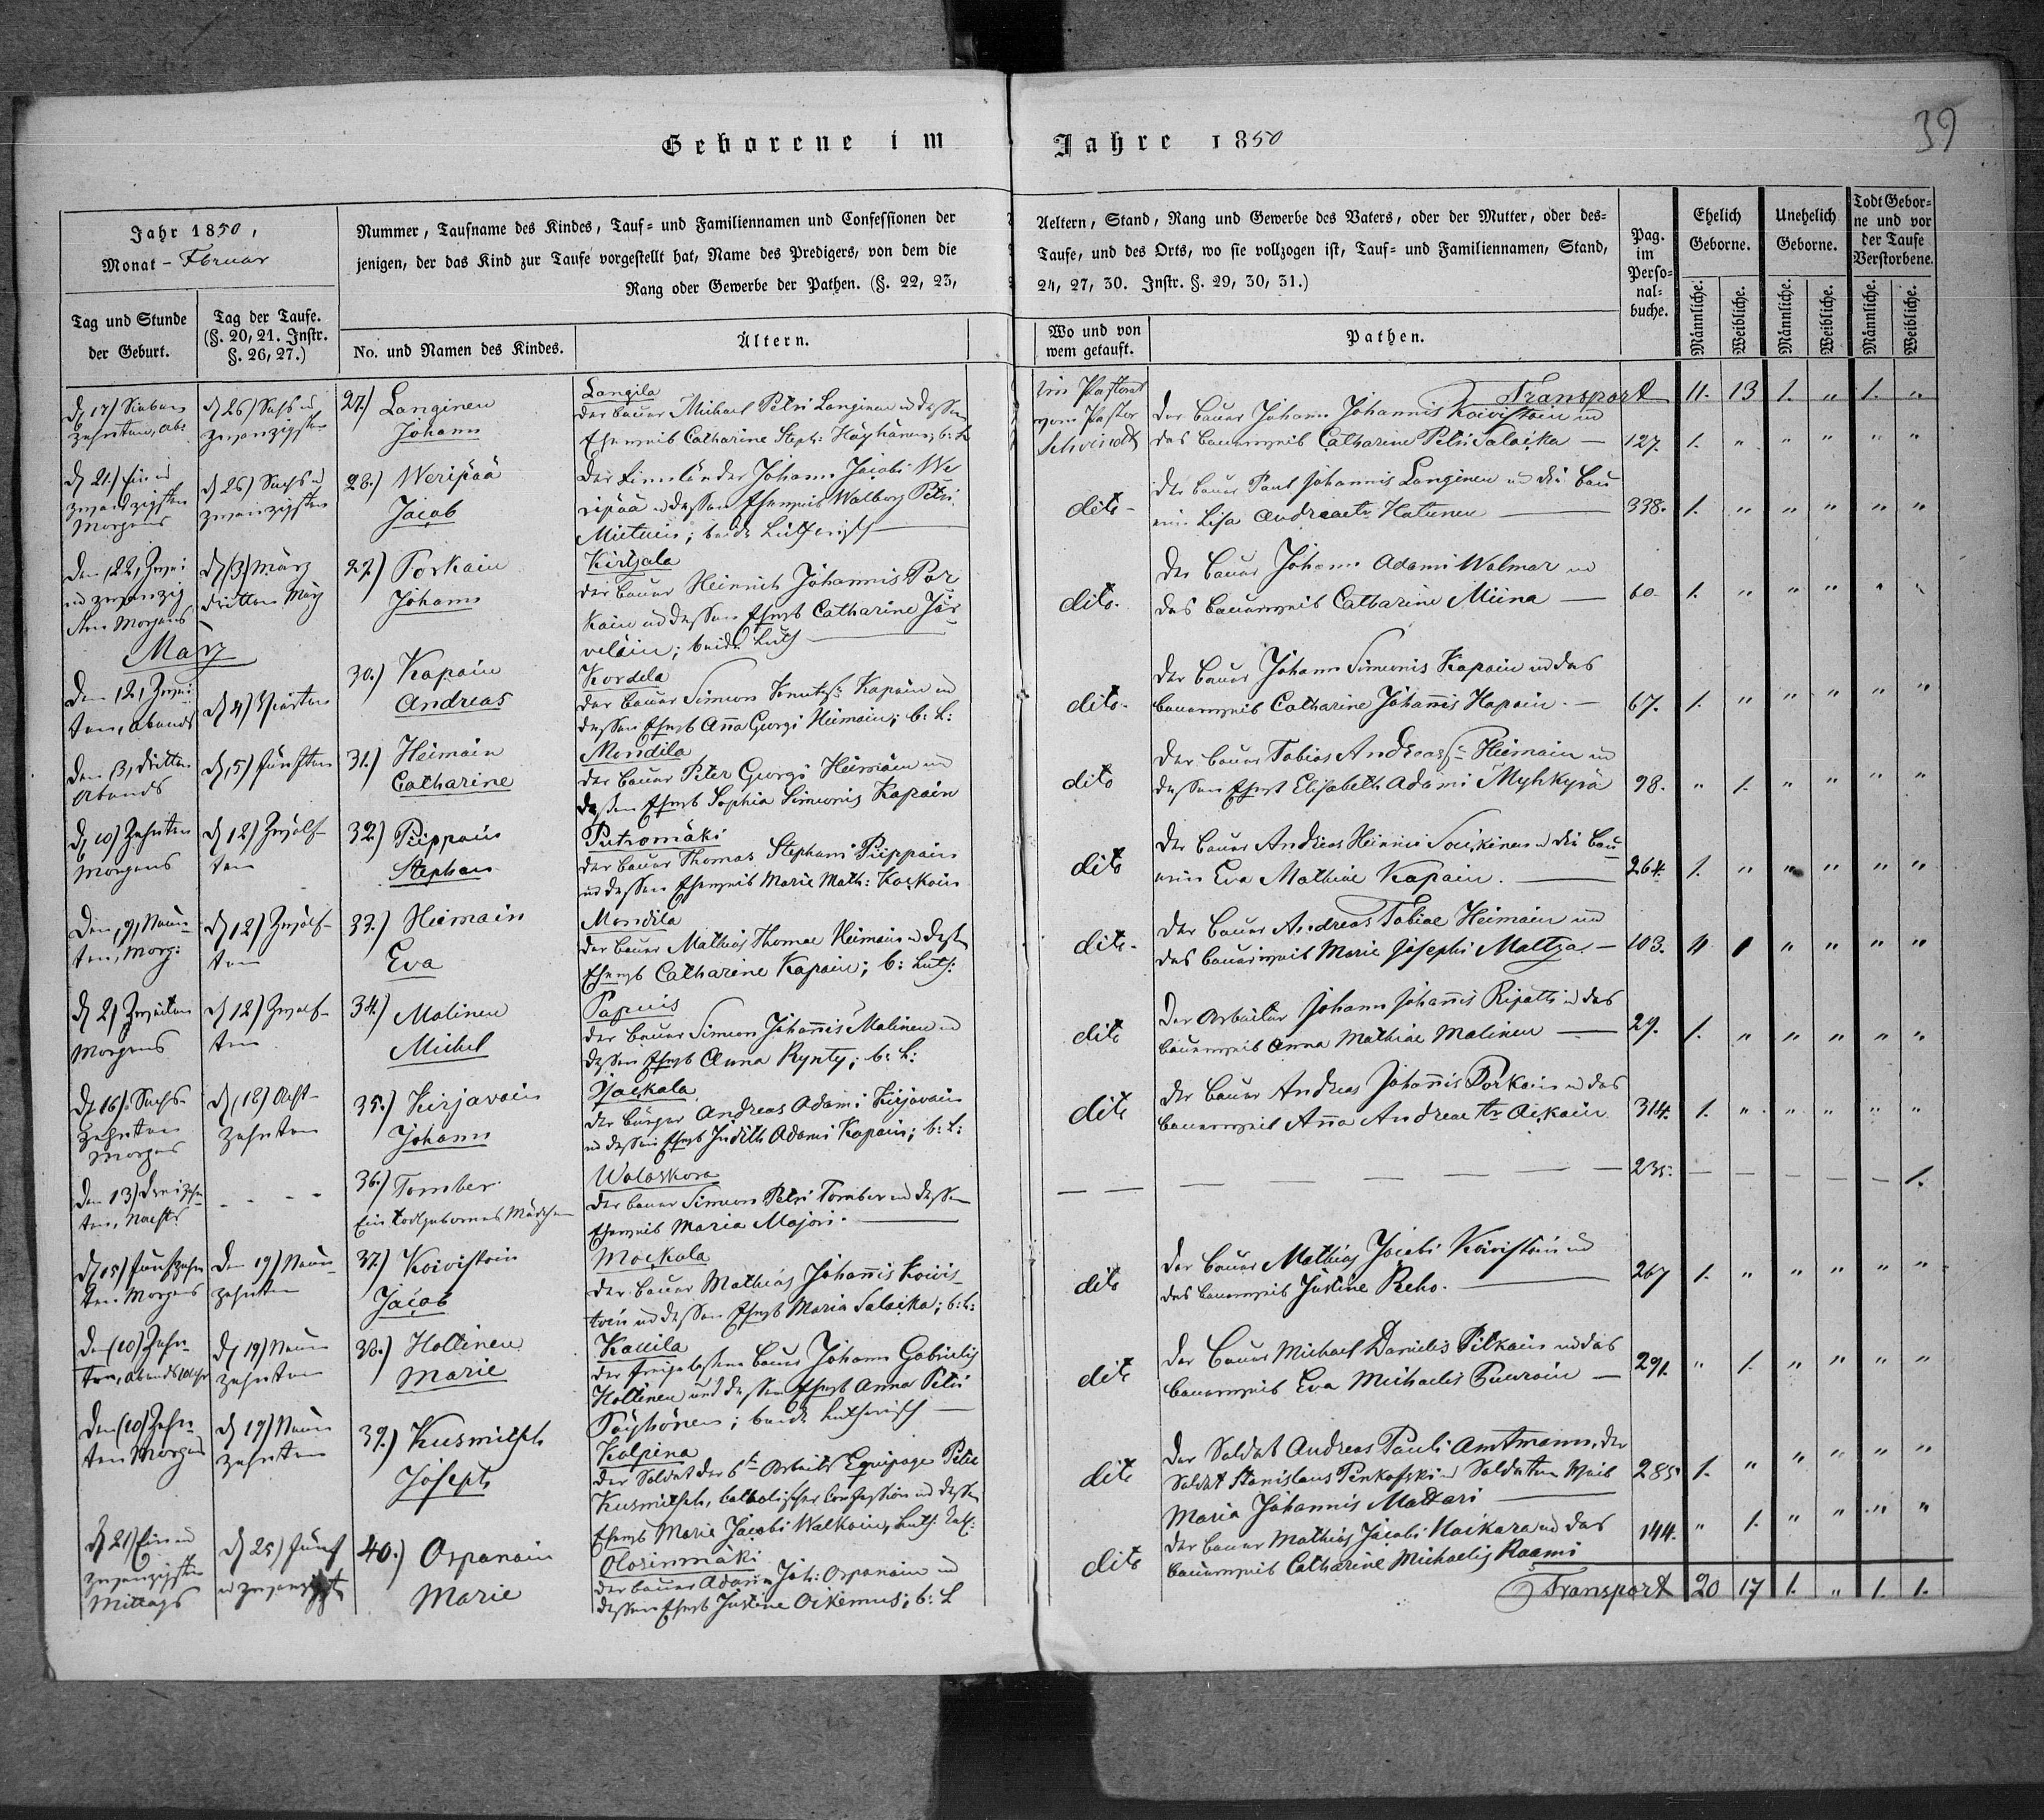 39
Geborene im Jahre 1850
Jahr 1850,
Monat - Februar
Tag und Stunde
der Geburt.
Tag der Taufe.
(§. 20, 21. Instr.
§. 26, 27.)
Nummer, Taufname des Kindes, Tauf- und Familiennamen und Confessionen der
jenigen, der das Kind zur Taufe vorgestellt hat, Name des Predigers, von dem die
Rang oder Gewerbe der Pathen. (§. 22, 23,
No. und Namen des Kindes.
Ältern.
Aeltern, Stand, Rang und Gewerbe des Vaters, oder der Mutter, oder des-
Taufe, und des Orts, wo sie vollzogen ist, Tauf- und Familiennamen, Stand,
24, 27, 30. Instr. §. 29, 30, 31.)
Wo und von
wem getauft.
Pathen.
Pag.
im
Perso-
nal-
buche.
Ehelich
Geborne.
Unehelich
Geborne.
Todt Gebor-
ne und vor
der Taufe
Verstorbene.
Männliche.
Weibliche.
Männliche.
Weibliche.
Männliche.
Weibliche.
Transport 11. 13 1. " 1. "
d 17) Sieben
zehnten, Ab:
d 26) Sechs u
zwanzigsten
27.) Langinen
Johann
Langila
der Bauer Michael Petri Langinen u dessen
Eheweib Catharine Steph: Häyhänen; b: L
Im Pastorat
vom Pastor
Schvindt
der Bauer Johann Johannis Koivistoin u
das Bauerweib Catharine Petri Salaika — 127. 1. " " " " "
d 21.) Ein u
zwanzigsten
Morgens
d 26) Sechs u
zwanzigsten
28.) Weripää
Jacob
der Finnländer Johann Jacobi We
ripää u dessen Eheweib Walborg Petri
Mietuin; beide Lutherisch
dito -
der Bauer Paul Johannis Langinen u die Bäu
erin Lisa Andreaetr Hatunen — 338. 1. " " " " "
Den (22, Zwei
und zwanzig
sten Morgens
d (3) März
dritten März
29.) Porkain
Johann
Kirjala
der Bauer Heinrich Johannis Por
kain und dessen Ehewb Catharine Jär-
veläin; beide Luth
dito.
der Bauer Johann Adami Walmar u
das Bauerweib Catharine Miina — 60. 1. " " " " "
März
Den (2, Zwei
ten, Abends
d 4) Vierten
30.) Kapain
Andreas
Kordela
der Bauer Simeon Kapain u
dessen Ehewb Anna Georgi Heimain; b: L:
dito.
der Bauer Johann Simeonis Kapain und das
Bauerweib Catharine Johannis Hapain. — 67. 1. " " " " "
Den (3, dritten
Abends
d (5) fünften
31.) Heimain
Catharine
Mondila
der Bauer Peter Georgi Heimain u
dessen Ehewb Sophia Simeonis Kapain
dito
der Bauer Tobias Andreas Heimain u
dessen Ehewb Elisabeth Adami Myhkyrä 98. " 1. " " " "
d 10) Zehnten
Morgens
d 12) Zwölf-
ten
32.) Piippain
Stephan
Putromäki
der Bauer Thomas Stephani Piippain
und dessen Eheweib Marie Math: Koskain
dito
der Bauer Andreas Heinrici Soikinen u die Bäu
erin Eva Mathiae Kapain. — 264. 1. " " " " "
Den (9, Neun-
ten, Morg:
d 12) Zwölf-
ten
33.) Heimain
Eva
Mondila
der Bauer Mathias Thomae Heimain u dessen
Ehewb Catharine Kapain; b: Luth:
dito -
der Bauer Andreas Tobiae Heimain und
das Bauerweib Marie Josephi Mattza — 103. " 1 " " " "
d 2) Zweiten
Morgens
d 12) Zwölf-
ten
34.) Malinen
Michel
Papuis
der Bauer Simeon Johannis Malinen u
dessen Ehewb Anna Rynty; b: L:
dito
Der Arbeiter Johann Johannis Ripatti u das
Bauerweib Anna Mathiae Malinen — 29. 1. " " " " "
d 16) Sechs-
zehnten
Morgens
d (18) Acht-
zehnten
35.) Kirjavain
Johann
Jackala
der Bürger Andreas Adami Kirjavain
u dessen Ehewb Judith Adami Kapain; b: L:
dito
der Bauer Andreas Johannis Porkain u das
Bauerweib Anna Andreae tr Oikain 314. 1. " " " " "
Den 13) Dreizehn
ten, Nachts
- - - -
36.) Tomber
Ein todtgebornes Mädchen
Walaskora
der Bauer Simeon Petri Tomber und dessen
Eheweib Maria Majori.
— — — — — 235. — — — — — 1.
d 15) Fünfzehn
ten Morgens
den 19) Neun
zehnten
37.) Koivistoin
Jacob
Mackala
der Bauer Mathias Johannis Koivis-
toin und dessen Ehewb Maria Salaika; b: L:
dito
der Bauer Mathias Jacobi Koivistoin und
das Bauerweib Justine Reho. — 267 1. " " " " "
Den (10) Zehn-
ten, Abends 10 Uhr
d 19) Neun
zehnten
38.) Hottinen
Marie
Kallila
der freigelassene Bauer Johann Gabrielis
Hottinen und dessen Ehewb Anna Petri
Töyhönen; beide Lutherisch
dito
der Bauer Michael Danielis Pilkain und das
Bauerweib Eva Michaelis Puurain — 291. " 1. " " " "
Den (10) Zehn-
ten Morgens
d 19) Neun
zehnten
39.) Kusmitsch
Joseph
Kalpina
der Soldat der 6t Arbeits Equipage Peter
Kusmitsch, Catholischer Confession u dessen
Ehewb Marie Jacobi Walkain, Luth:
dito
der Soldat Andreas Pauli Amtmann, der
Soldat Stanislaus Penkofski u Soldaten Weib
Maria Johannis Mattari — 285 1. " " " " "
d 21) Ein und
zwanzigsten
Mittags
d 25) Fünf
u zwanzigst
40.) Orpanain
Marie
Olosinmäki
der Bauer Adam Joh: Orpanain und
dessen Ehewb Justine Oikemus; b: L
dito
der Bauer Mathias Jacobi Kaikara und das
Bauerweib Catharine Michaelis Raami 144. " 1. " " " "
Transport 20 17 1. " 1. 1.